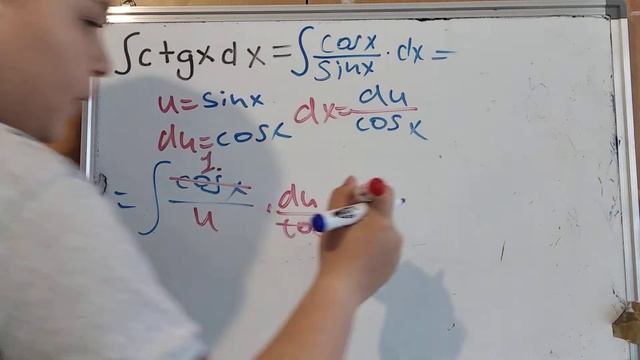 ∫ctgxdx = ∫ cosx/sinx · dx =
u = sinx dx = du/cosx
du = cosx
= ∫ 1. cosx/u · du/cos